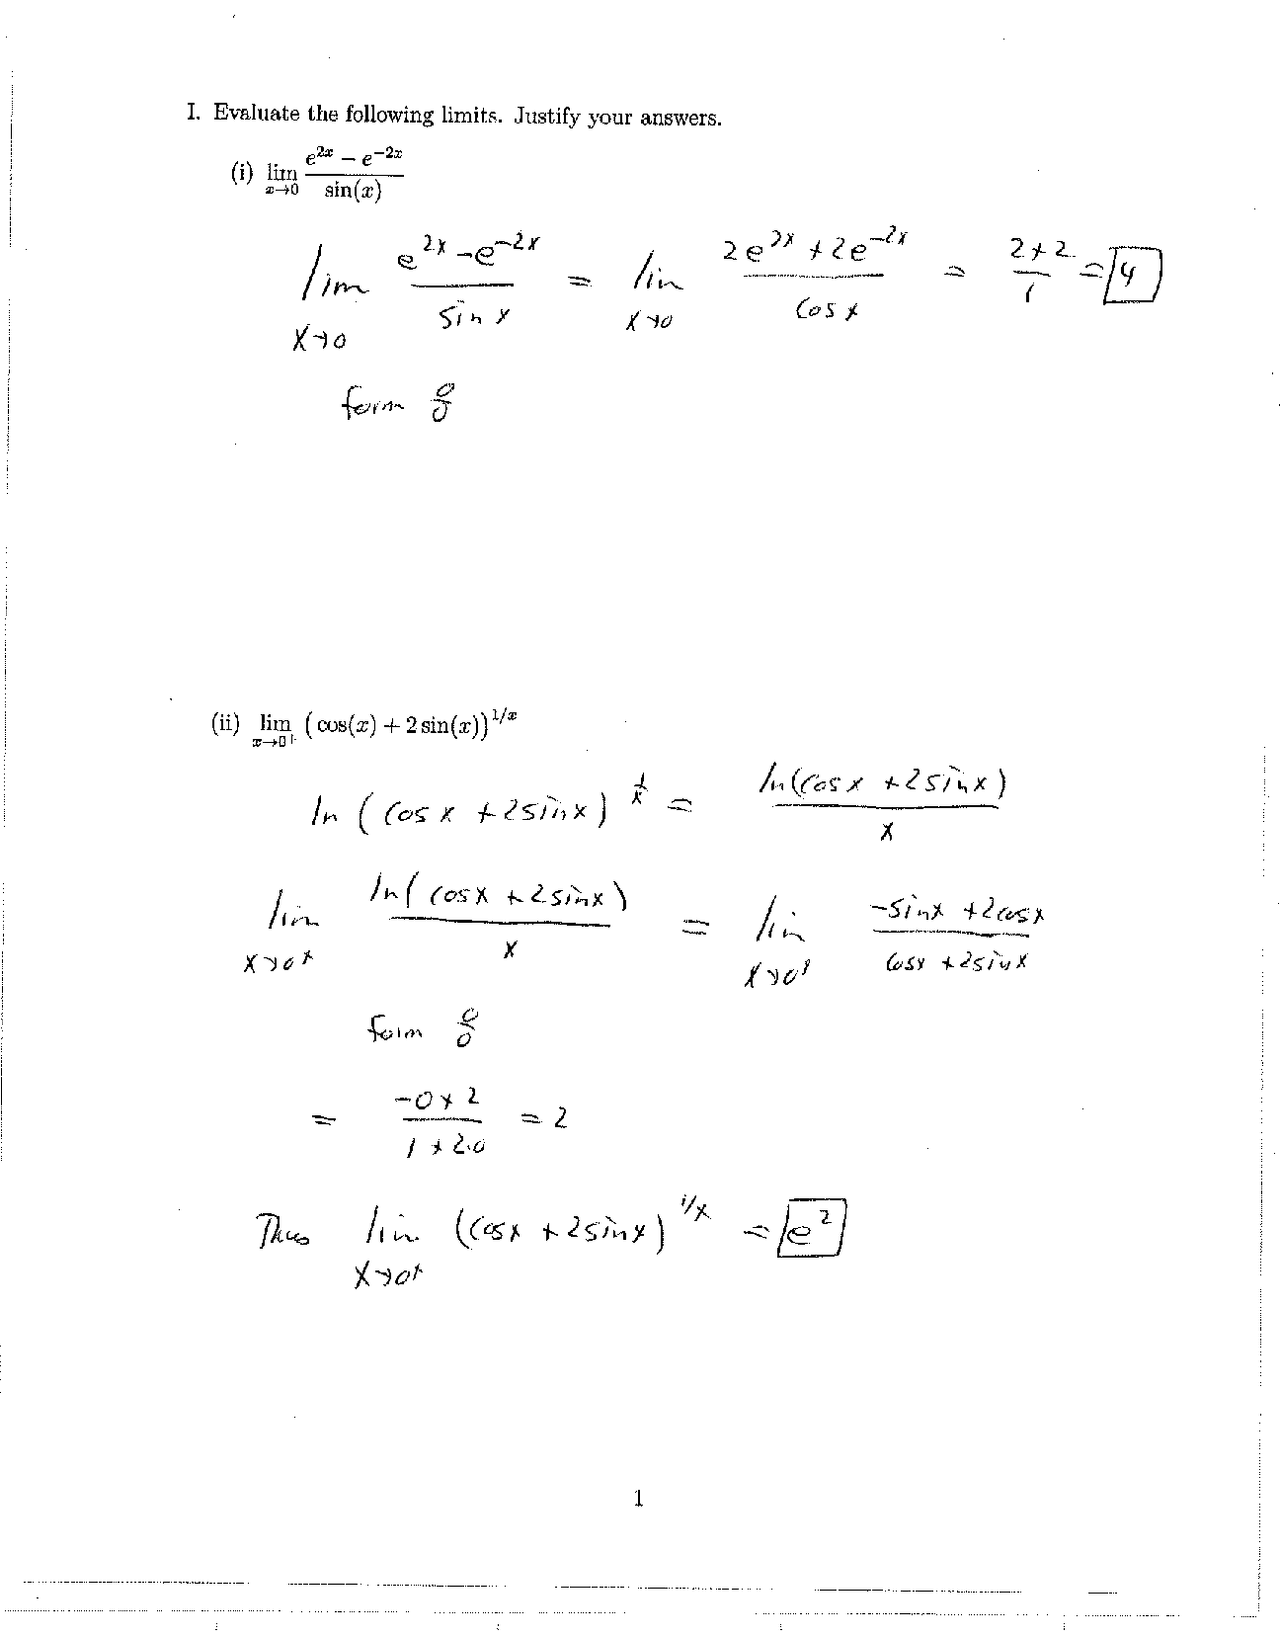 I. Evaluate the following limits. Justify your answers.
(i) lim_{x→0} (e^{2x} − e^{−2x}) / sin(x)
lim_{x→0} (e^{2x} − e^{−2x}) / sin x = lim_{x→0} (2e^{2x} + 2e^{−2x}) / cos x = (2+2)/1 = 4
form 0/0
(ii) lim_{x→0+} (cos(x) + 2 sin(x))^{1/x}
ln (cos x + 2 sin x)^{1/x} = ln(cos x + 2 sin x) / x
lim_{x→0+} ln(cos x + 2 sin x) / x = lim_{x→0+} (−sin x + 2cos x) / (cos x + 2 sin x)
form 0/0
= (−0+2) / (1+2·0) = 2
Thus lim_{x→0+} (cos x + 2 sin x)^{1/x} = e^2
1